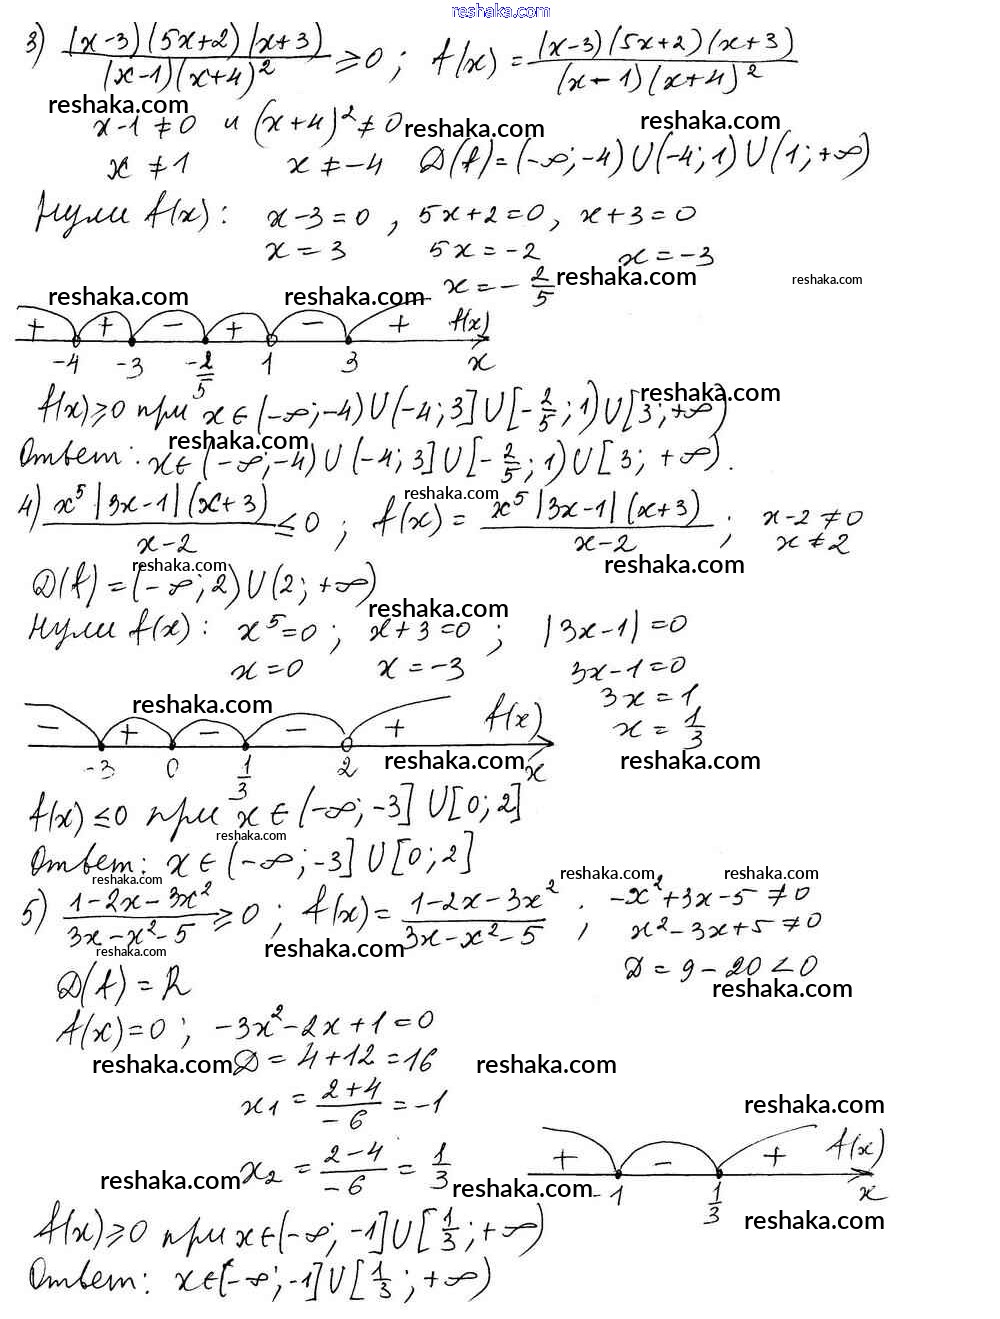 reshaka.com
3) (x-3)(5x+2)(x+3) / (x-1)(x+4)² ≥ 0 ; f(x) = (x-3)(5x+2)(x+3) / (x-1)(x+4)²
reshaka.com reshaka.com reshaka.com
x-1≠0 и (x+4)²≠0
x≠1 x≠-4 D(f)=(-∞;-4)U(-4;1)U(1;+∞)
Нули f(x): x-3=0, 5x+2=0, x+3=0
x=3 5x=-2 x=-3
x=-2/5 reshaka.com reshaka.com
reshaka.com reshaka.com
+ + - + - + f(x)
-4 -3 -2/5 1 3 x
f(x)≥0 при x∈(-∞;-4)U(-4;3]U[-2/5;1)U[3;+∞)
reshaka.com reshaka.com
Ответ: x∈(-∞;-4)U(-4;3]U[-2/5;1)U[3;+∞).
reshaka.com
4) x⁵|3x-1|(x+3) / x-2 ≤ 0 ; f(x) = x⁵|3x-1|(x+3) / x-2 ; x-2≠0
x≠2
reshaka.com reshaka.com
D(f)=(-∞;2)U(2;+∞)
reshaka.com
Нули f(x): x⁵=0 ; x+3=0 ; |3x-1|=0
x=0 x=-3 3x-1=0
3x=1
x=1/3
reshaka.com
- + - - + f(x)
-3 0 1/3 2 x
reshaka.com reshaka.com
f(x)≤0 при x∈(-∞;-3]U[0;2]
reshaka.com
Ответ: x∈(-∞;-3]U[0;2]
reshaka.com reshaka.com reshaka.com
5) 1-2x-3x² / 3x-x²-5 ≥ 0 ; f(x) = 1-2x-3x² / 3x-x²-5 ; -x²+3x-5≠0
x²-3x+5≠0
reshaka.com reshaka.com
D=9-20<0
reshaka.com
D(f)=R
f(x)=0 ; -3x²-2x+1=0
reshaka.com D=4+12=16 reshaka.com
x₁ = 2+4 / -6 = -1
reshaka.com
x₂ = 2-4 / -6 = 1/3
+ - + f(x)
-1 1/3 x
reshaka.com reshaka.com
reshaka.com
f(x)≥0 при x∈(-∞;-1]U[1/3;+∞)
Ответ: x∈(-∞;-1]U[1/3;+∞)